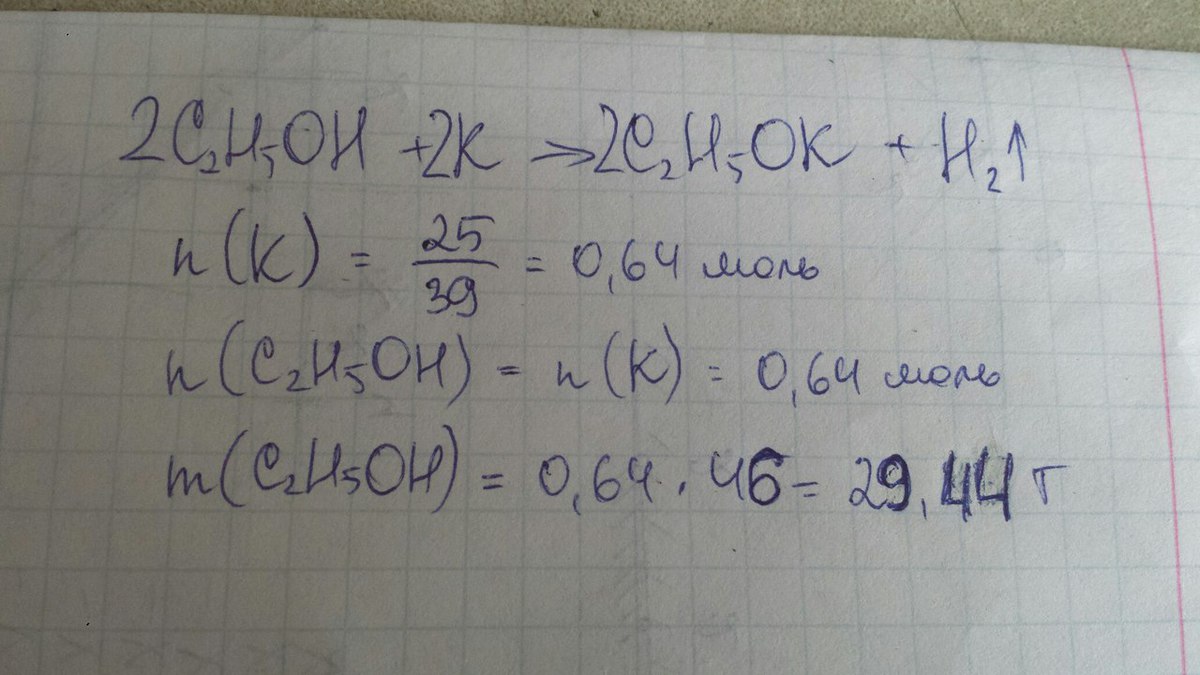 2C₂H₅OH + 2K → 2C₂H₅OK + H₂↑
n(K) = 25/39 = 0,64 моль
n(C₂H₅OH) = n(K) = 0,64 моль
m(C₂H₅OH) = 0,64 · 46 = 29,44 г